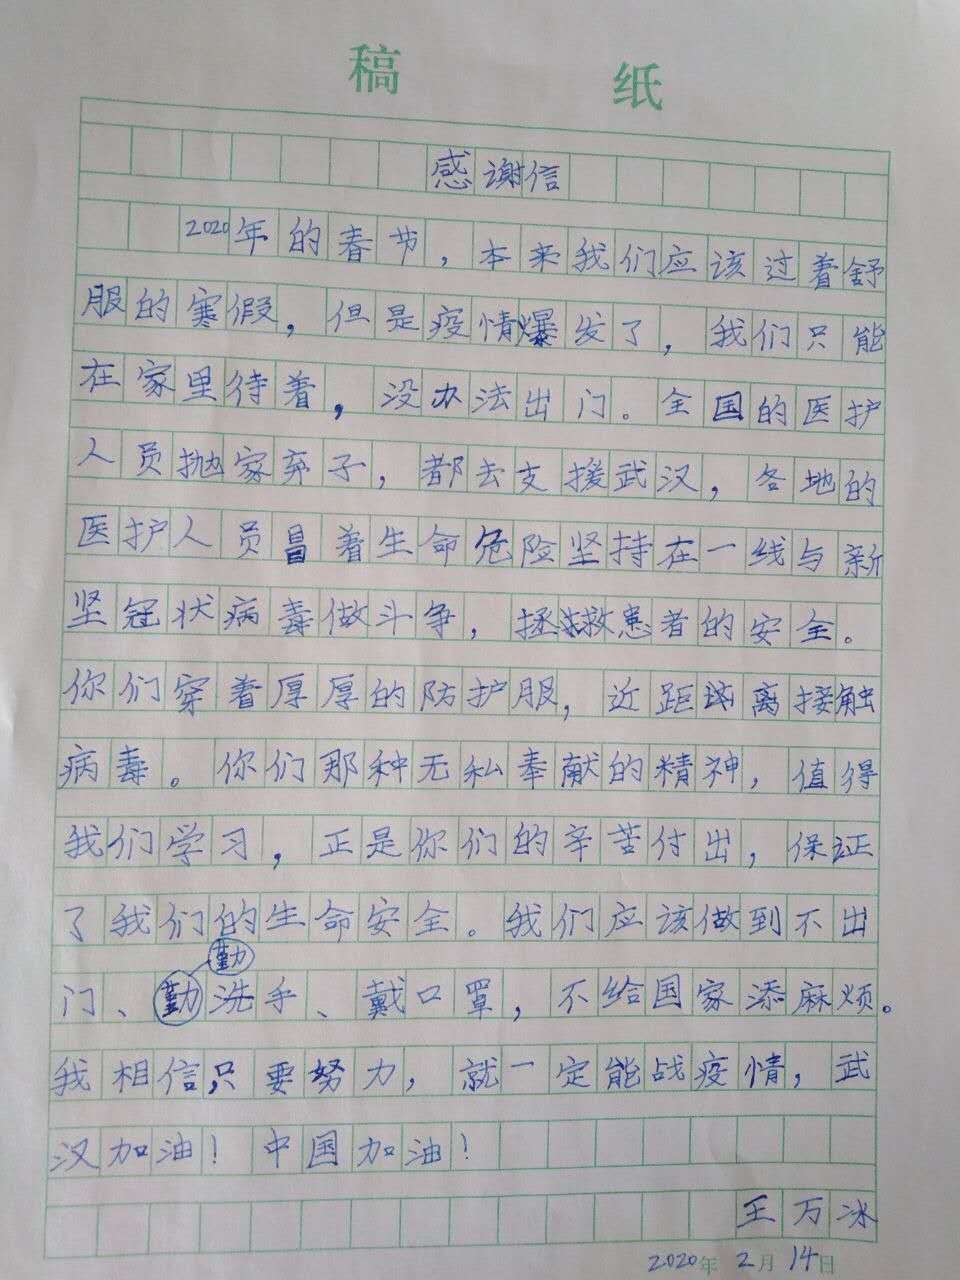 稿 纸
感谢信
2020年的春节，本来我们应该过着舒
服的寒假，但是疫情爆发了，我们只能
在家里待着，没办法出门。全国的医护
人员抛家弃子，都去支援武汉，各地的
医护人员冒着生命危险坚持在一线与新
坚冠状病毒做斗争，拯救患者的安全。
你们穿着厚厚的防护服，近距离接触
病毒。你们那种无私奉献的精神，值得
我们学习，正是你们的辛苦付出，保证
了我们的生命安全。我们应该做到不出
勤
门、勤洗手、戴口罩，不给国家添麻烦。
我相信，只要努力，就一定能战疫情，武
汉加油！中国加油！
王万冰
2020年2月14日